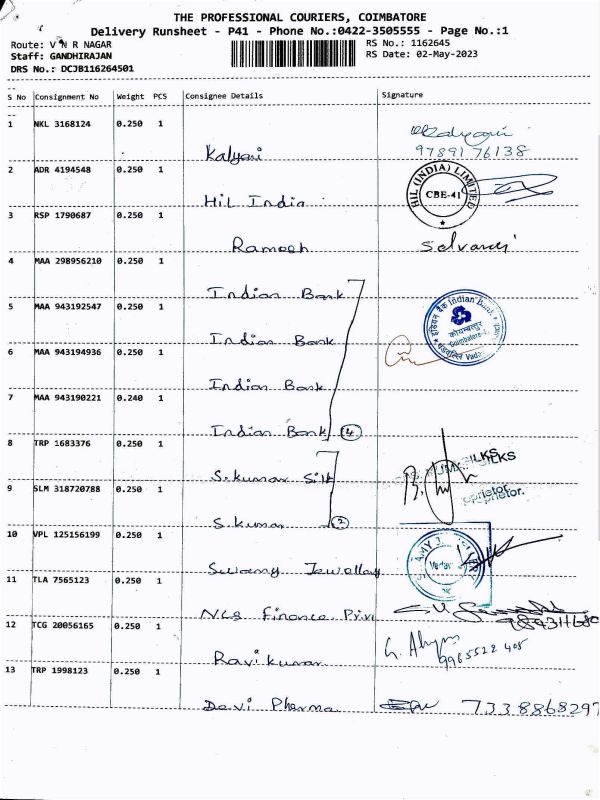 THE PROFESSIONAL COURIERS, COIMBATORE
Delivery Runsheet - P41 - Phone No.:0422-3505555 - Page No.:1
Route: V N R NAGAR
RS No.: 1162645
Staff: GANDHIRAJAN
RS Date: 02-May-2023
DRS No.: DCJB116264501
S No Consignment No Weight PCS Consignee Details Signature
1 NKL 3168124 0.250 1
Kalyani
97891 76138
2 ADR 4194548 0.250 1
Hil India
HIL (INDIA) LIMITED
CBE-41
3 RSP 1790687 0.250 1
Ramesh
4 MAA 298956210 0.250 1
Indian Bank
5 MAA 943192547 0.250 1
Indian Bank
Indian Bank
कोयम्बत्तूर
Coimbatore
6 MAA 943194936 0.250 1
Indian Bank
7 MAA 943190221 0.240 1
Indian Bank 4
8 TRP 1683376 0.250 1
S.kumar Silk
SILKS
9 SLM 318720788 0.250 1
S.kumar 2
Proprietor.
10 VPL 125156199 0.250 1
Swamy Jewellary
11 TLA 7565123 0.250 1
Ncs Finance Priv
12 TCG 20056165 0.250 1
Ravi kumar
9965522 405
13 TRP 1998123 0.250 1
Devi Pharma
7338868297